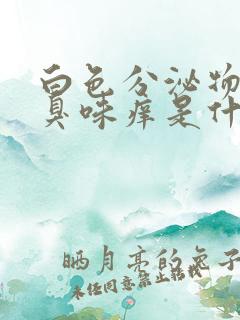 白色分泌物
臭味痒是什
晒月亮的兔子
未经同意禁止转载